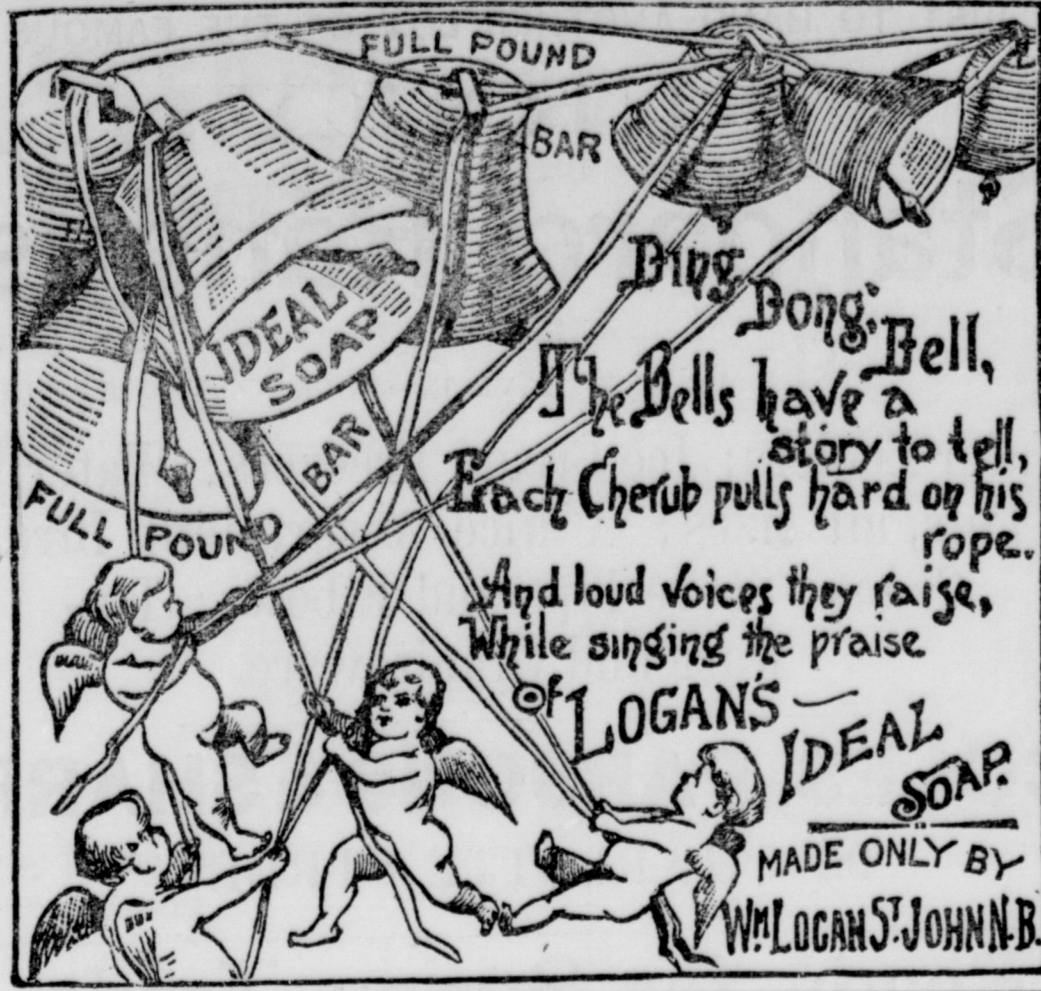 FULL POUND
BAR
IDEAL
SOAP
BAR
FULL POUND
Ding
Dong
Bell,
The Bells have a
story to tell,
Each Cherub pulls hard on his
rope.
And loud voices they raise,
While singing the praise
Of LOGAN'S —
IDEAL
SOAP.
MADE ONLY BY
WM LOGAN ST. JOHN N.B.